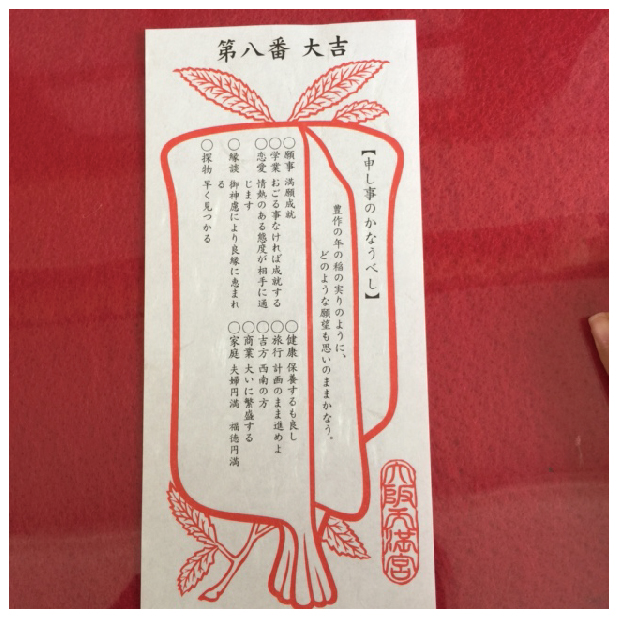 第八番 大吉
【申し事のかなうべし】
豊作の年の稲の実りのように、
どのような願望も思いのままかなう。
○願事 満願成就
○学業 おごる事なければ成就する
○恋愛 情熱のある態度が相手に通
じます
○縁談 御神慮により良縁に恵まれ
る
○探物 早く見つかる
○健康 保養するも良し
○旅行 計画のまま進めよ
○吉方 西南の方
○商業 大いに繁盛する
○家庭 夫婦円満 福徳円満
大阪天満宮